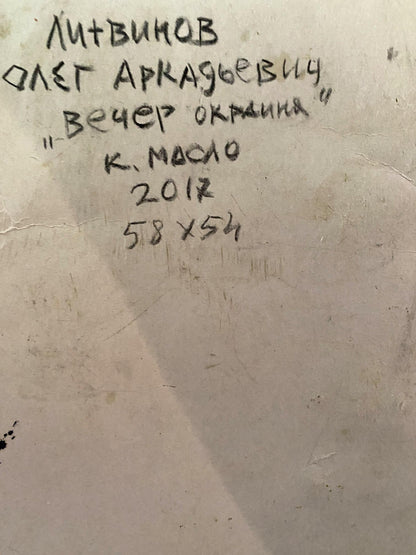 Литвинов
Олег Аркадьевич
"Вечер окраина"
к. масло
2017
58 x 54